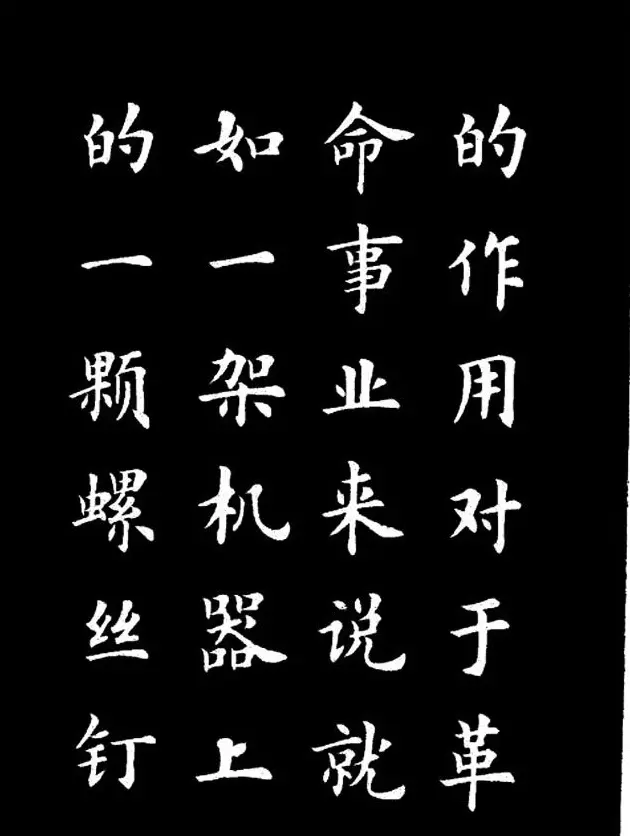 的作用对于革
命事业来说就
如一架机器上
的一颗螺丝钉